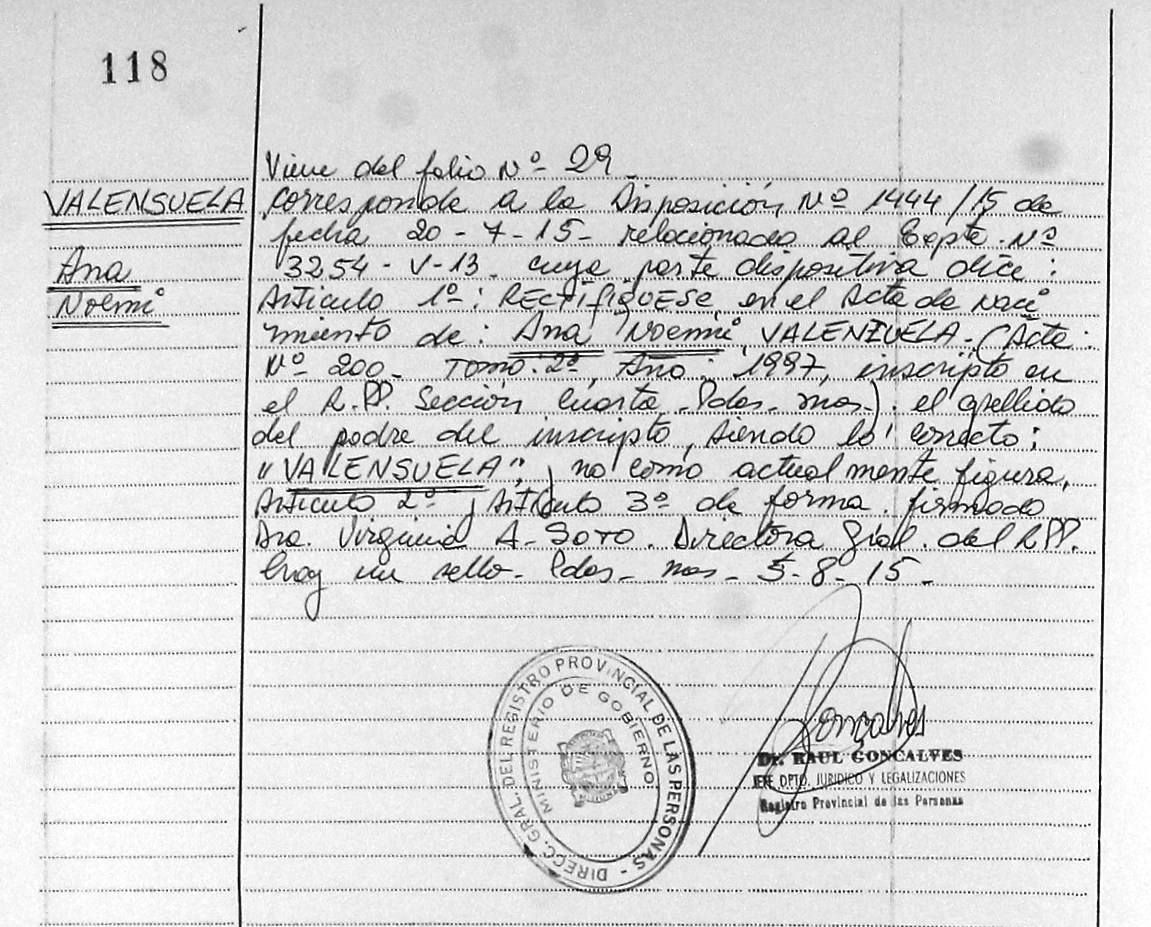 118
Viene del folio Nº 29.
VALENSUELA
Ana
Noemí
corresponde a la Disposición Nº 1444/15 de
fecha 20-7-15- relacionado al Expte. Nº
3254-V-13. cuya parte dispositiva dice:
Articulo 1º: RECTIFIQUESE, en el Acta de naci
miento de: Ana Noemí VALENZUELA-(Acta:
Nº 200- Tomo: 2º, Año: 1997, inscripto en
el R.PP. Sección Cuarta. Pdas. mnes): el apellido
del padre del inscripto, siendo lo correcto:
"VALENSUELA", no como actualmente figura.
Articulo 2º y Articulo 3º de forma. firmado
Dra. Virginia A. SOTO. Directora Gral. del R.PP.
hay un sello- Pdas- mnes- 5-8-15-
DIRECC. GRAL. DEL REGISTRO PROVINCIAL DE LAS PERSONAS -
MINISTERIO DE GOBIERNO
Gonçalves
Dr. RAUL GONCALVES
JEFE DPTO. JURIDICO Y LEGALIZACIONES
Registro Provincial de las Personas